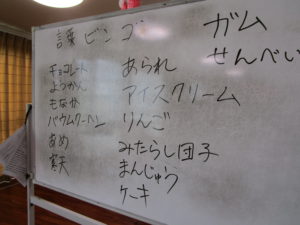 言葉ビンゴ
チョコレート
ようかん
もなか
バウムクーヘン
あめ
寒天
あられ
アイスクリーム
りんご
みたらし団子
まんじゅう
ケーキ
ガム
せんべい